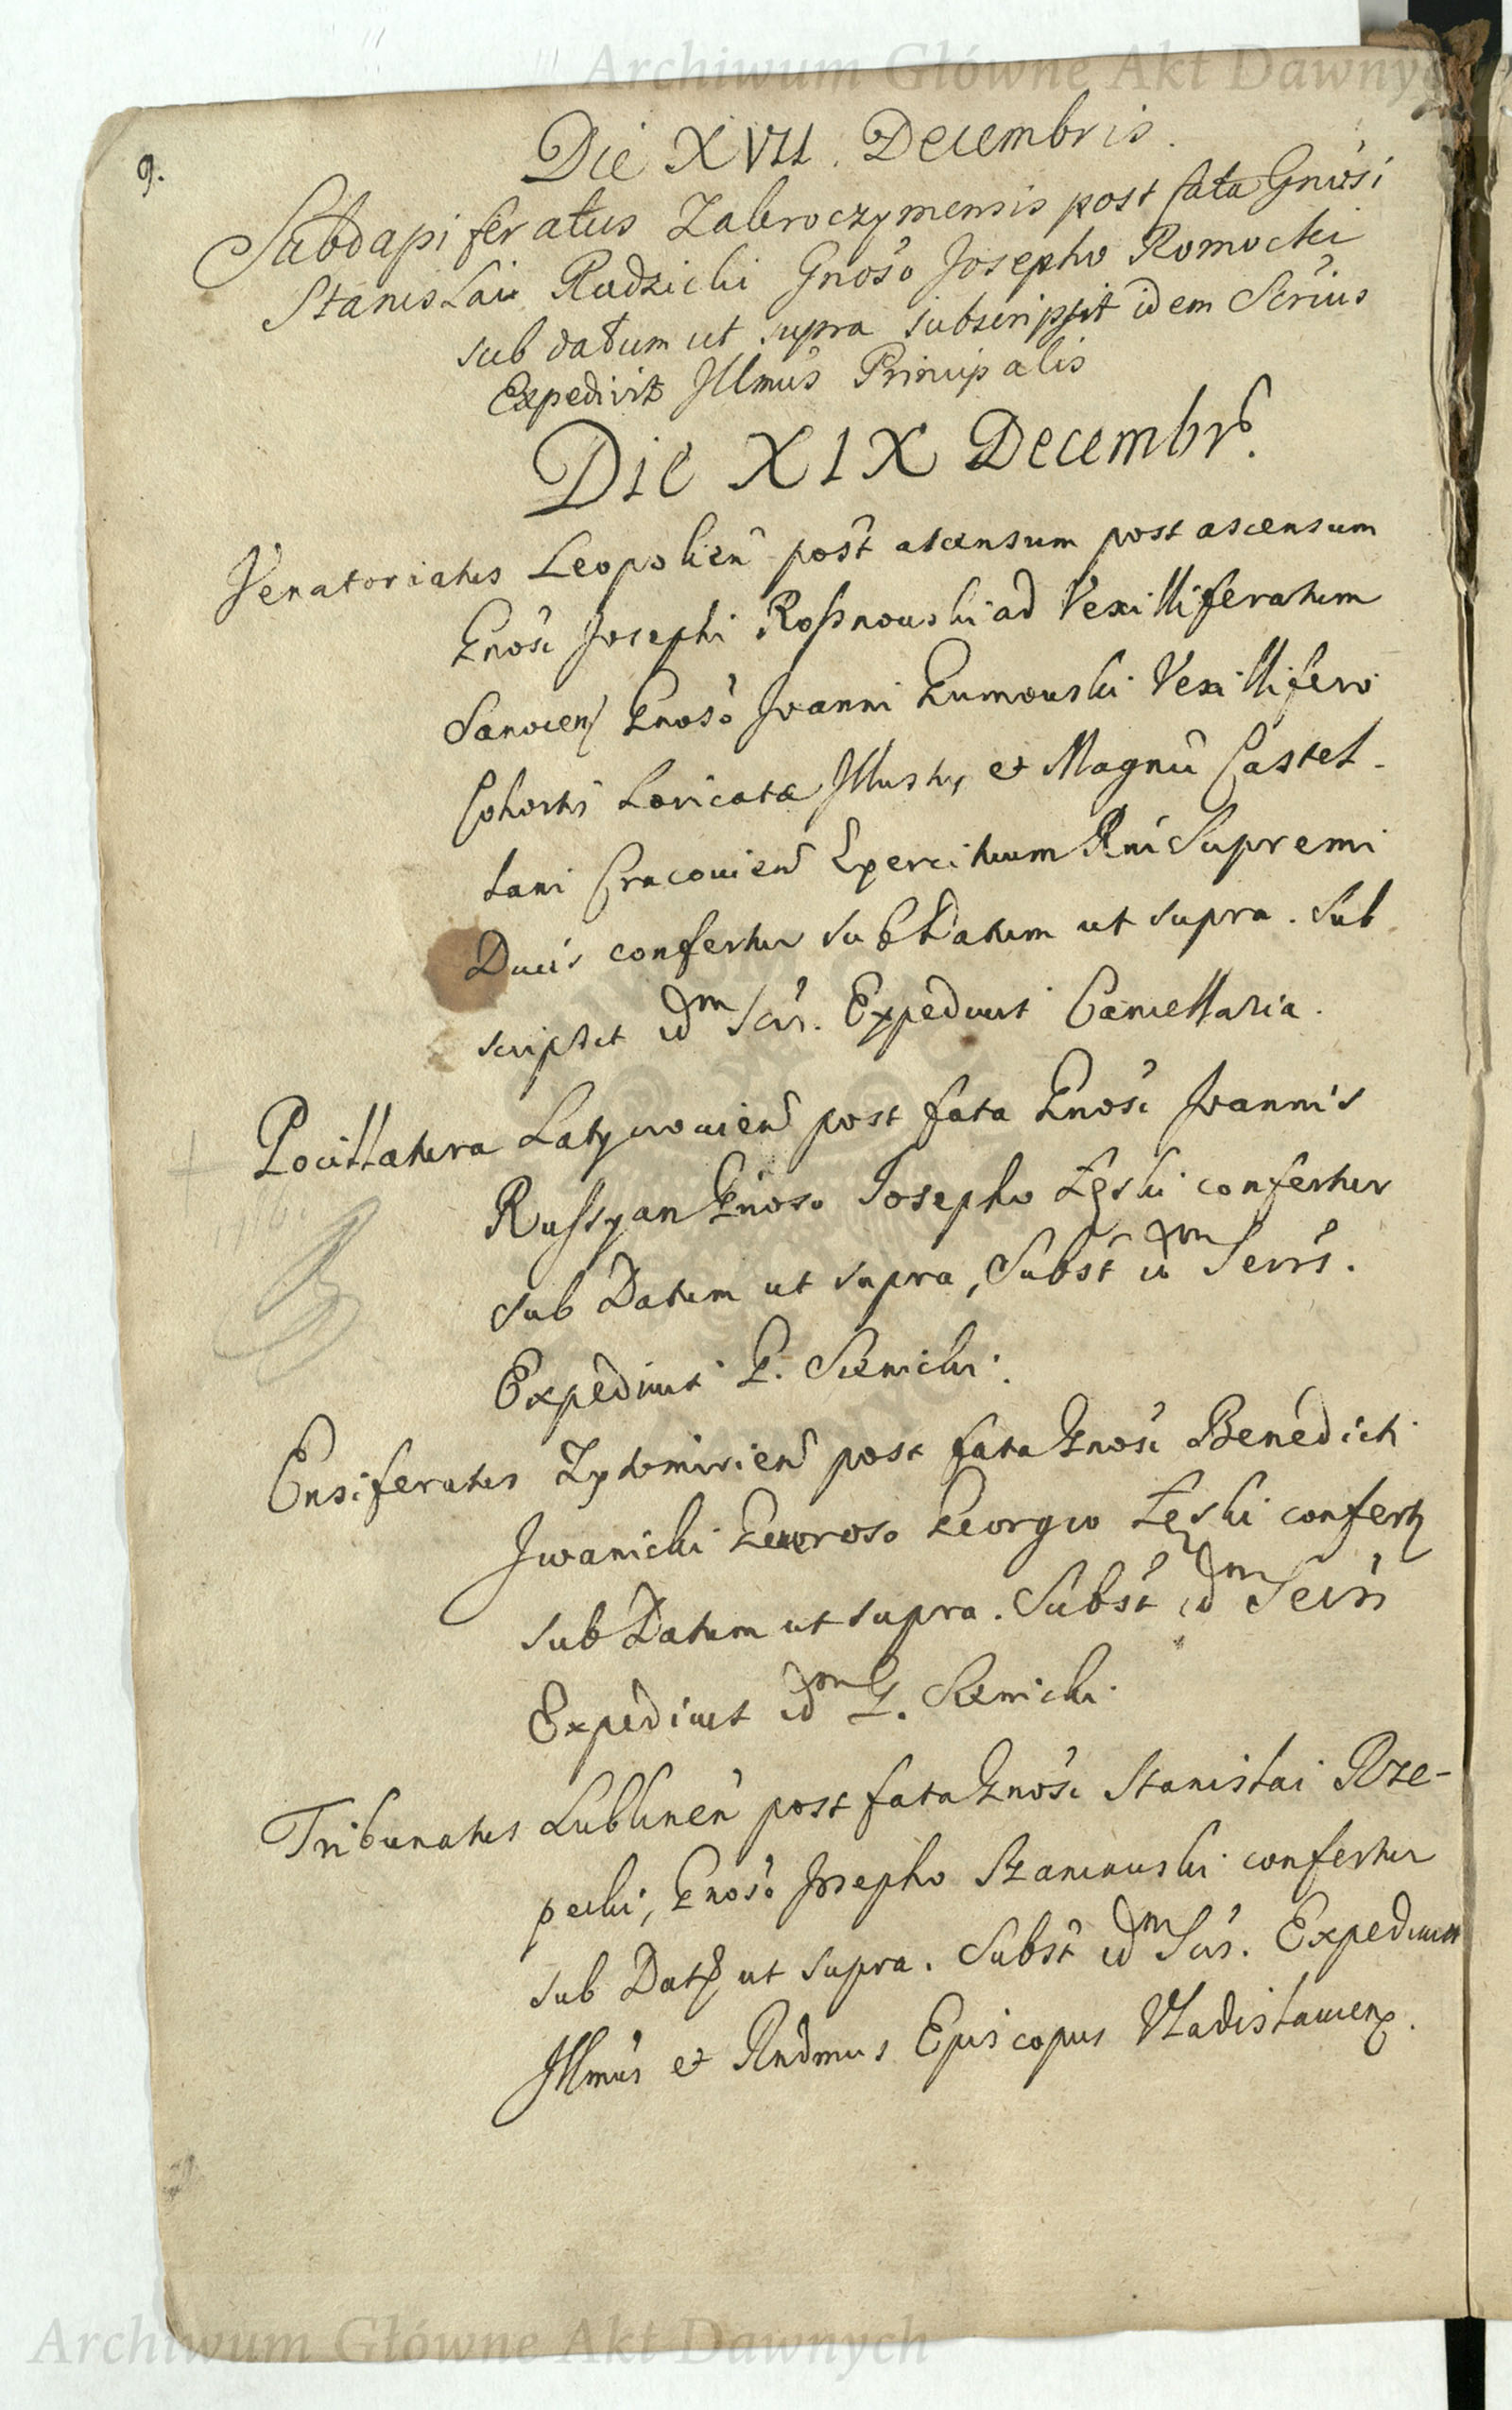 Archiwum Główne Akt Dawnych
9.
Die XVII. Decembris.
Subdapiferatus Zakroczymensis post fata Gnosi
Stanislai Radzicki Gnoso Josepho Romocki
sub datum ut supra subscripsit idem Scrius
Expedivit Illmus Principalis
Die XIX Decembr.
Venatoriatus Leopolien post ascensum post ascensum
Gnosi Josephi Rossnowski ad Vexilliferatum
Sanocen Gnoso Joanni Gumowski Vexillifero
Cohortis Loricatae Illustris et Magnci Castel-
lani Cracovien Exercituum Rni Supremi
Ducis confertur sub Datum ut supra. Sub
scripsit idm Scrs. Expedivit Cancellaria.
Pocillatura Latyczovien post fata Gnosi Joannis
Russyan Gnoso Josepho Łęski confertur
sub Datum ut supra, Subst idm Scrrs.
Expedivit G. Sienicki.
Ensiferatus Zytomirien post fata Gnosi Benedicti
Iwanicki Generoso Georgio Łęski confert
sub Datum ut supra. Subst idm Secrs
Expedivit idm G. Sienicki.
Tribunatus Lublinen post fata Gnosi Stanislai Rze-
pecki, Gnoso Josepho Szaniawski confertur
sub Dat ut supra. Subst idm Scrs. Expedivit
Illmus et Rndmus Episcopus Vladislavien.
Archiwum Główne Akt Dawnych